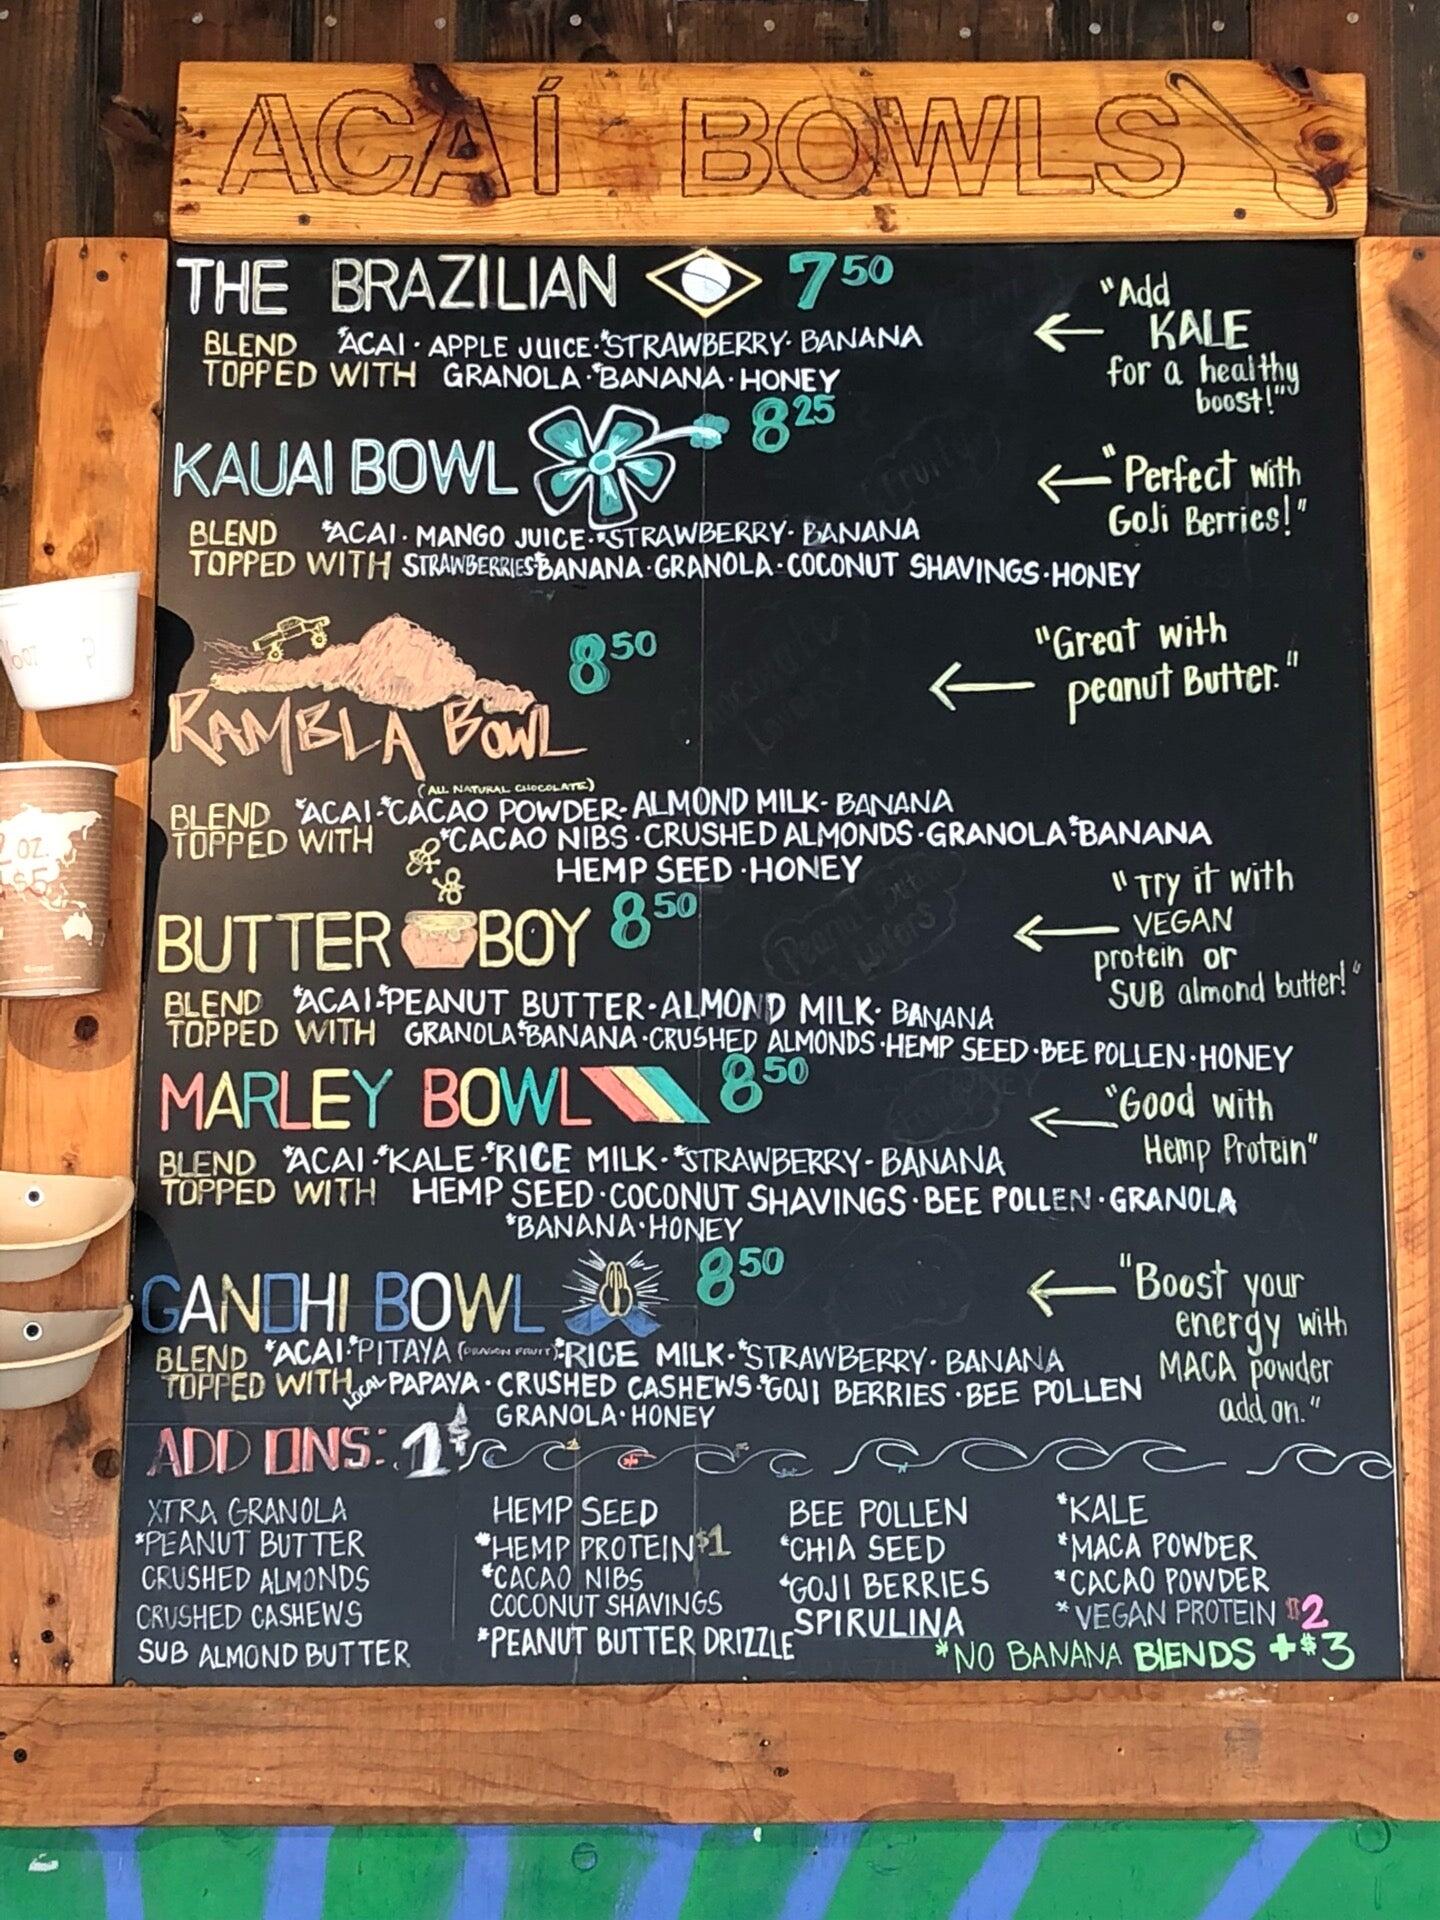 ACAÍ BOWLS
THE BRAZILIAN 7 50
BLEND *ACAI · APPLE JUICE · *STRAWBERRY · BANANA
TOPPED WITH GRANOLA · *BANANA · HONEY
"Add
KALE
for a healthy
boost!"
KAUAI BOWL 8 25
BLEND *ACAI · MANGO JUICE · *STRAWBERRY · BANANA
TOPPED WITH STRAWBERRIES · *BANANA · GRANOLA · COCONUT SHAVINGS · HONEY
"Perfect with
GoJi Berries!"
RAMBLA BOWL 8 50
"Great with
peanut Butter."
(ALL NATURAL CHOCOLATE)
BLEND *ACAI · *CACAO POWDER · ALMOND MILK · BANANA
TOPPED WITH *CACAO NIBS · CRUSHED ALMONDS · GRANOLA · *BANANA
HEMP SEED · HONEY
BUTTER BOY 8 50
"Try it with
VEGAN
protein or
SUB almond butter!"
BLEND *ACAI · *PEANUT BUTTER · ALMOND MILK · BANANA
TOPPED WITH GRANOLA · *BANANA · CRUSHED ALMONDS · HEMP SEED · BEE POLLEN · HONEY
MARLEY BOWL 8 50
"Good with
Hemp Protein"
BLEND *ACAI · *KALE · *RICE MILK · *STRAWBERRY · BANANA
TOPPED WITH HEMP SEED · COCONUT SHAVINGS · BEE POLLEN · GRANOLA
*BANANA · HONEY
GANDHI BOWL 8 50
"Boost your
energy with
MACA powder
add on."
BLEND *ACAI · *PITAYA (DRAGON FRUIT) · *RICE MILK · *STRAWBERRY · BANANA
TOPPED WITH LOCAL PAPAYA · CRUSHED CASHEWS · *GOJI BERRIES · BEE POLLEN
GRANOLA · HONEY
ADD ONS: 1$
XTRA GRANOLA
*PEANUT BUTTER
CRUSHED ALMONDS
CRUSHED CASHEWS
SUB ALMOND BUTTER
HEMP SEED
*HEMP PROTEIN $1
*CACAO NIBS
COCONUT SHAVINGS
*PEANUT BUTTER DRIZZLE
BEE POLLEN
*CHIA SEED
*GOJI BERRIES
SPIRULINA
*KALE
*MACA POWDER
*CACAO POWDER
*VEGAN PROTEIN $2
*NO BANANA BLENDS +$3